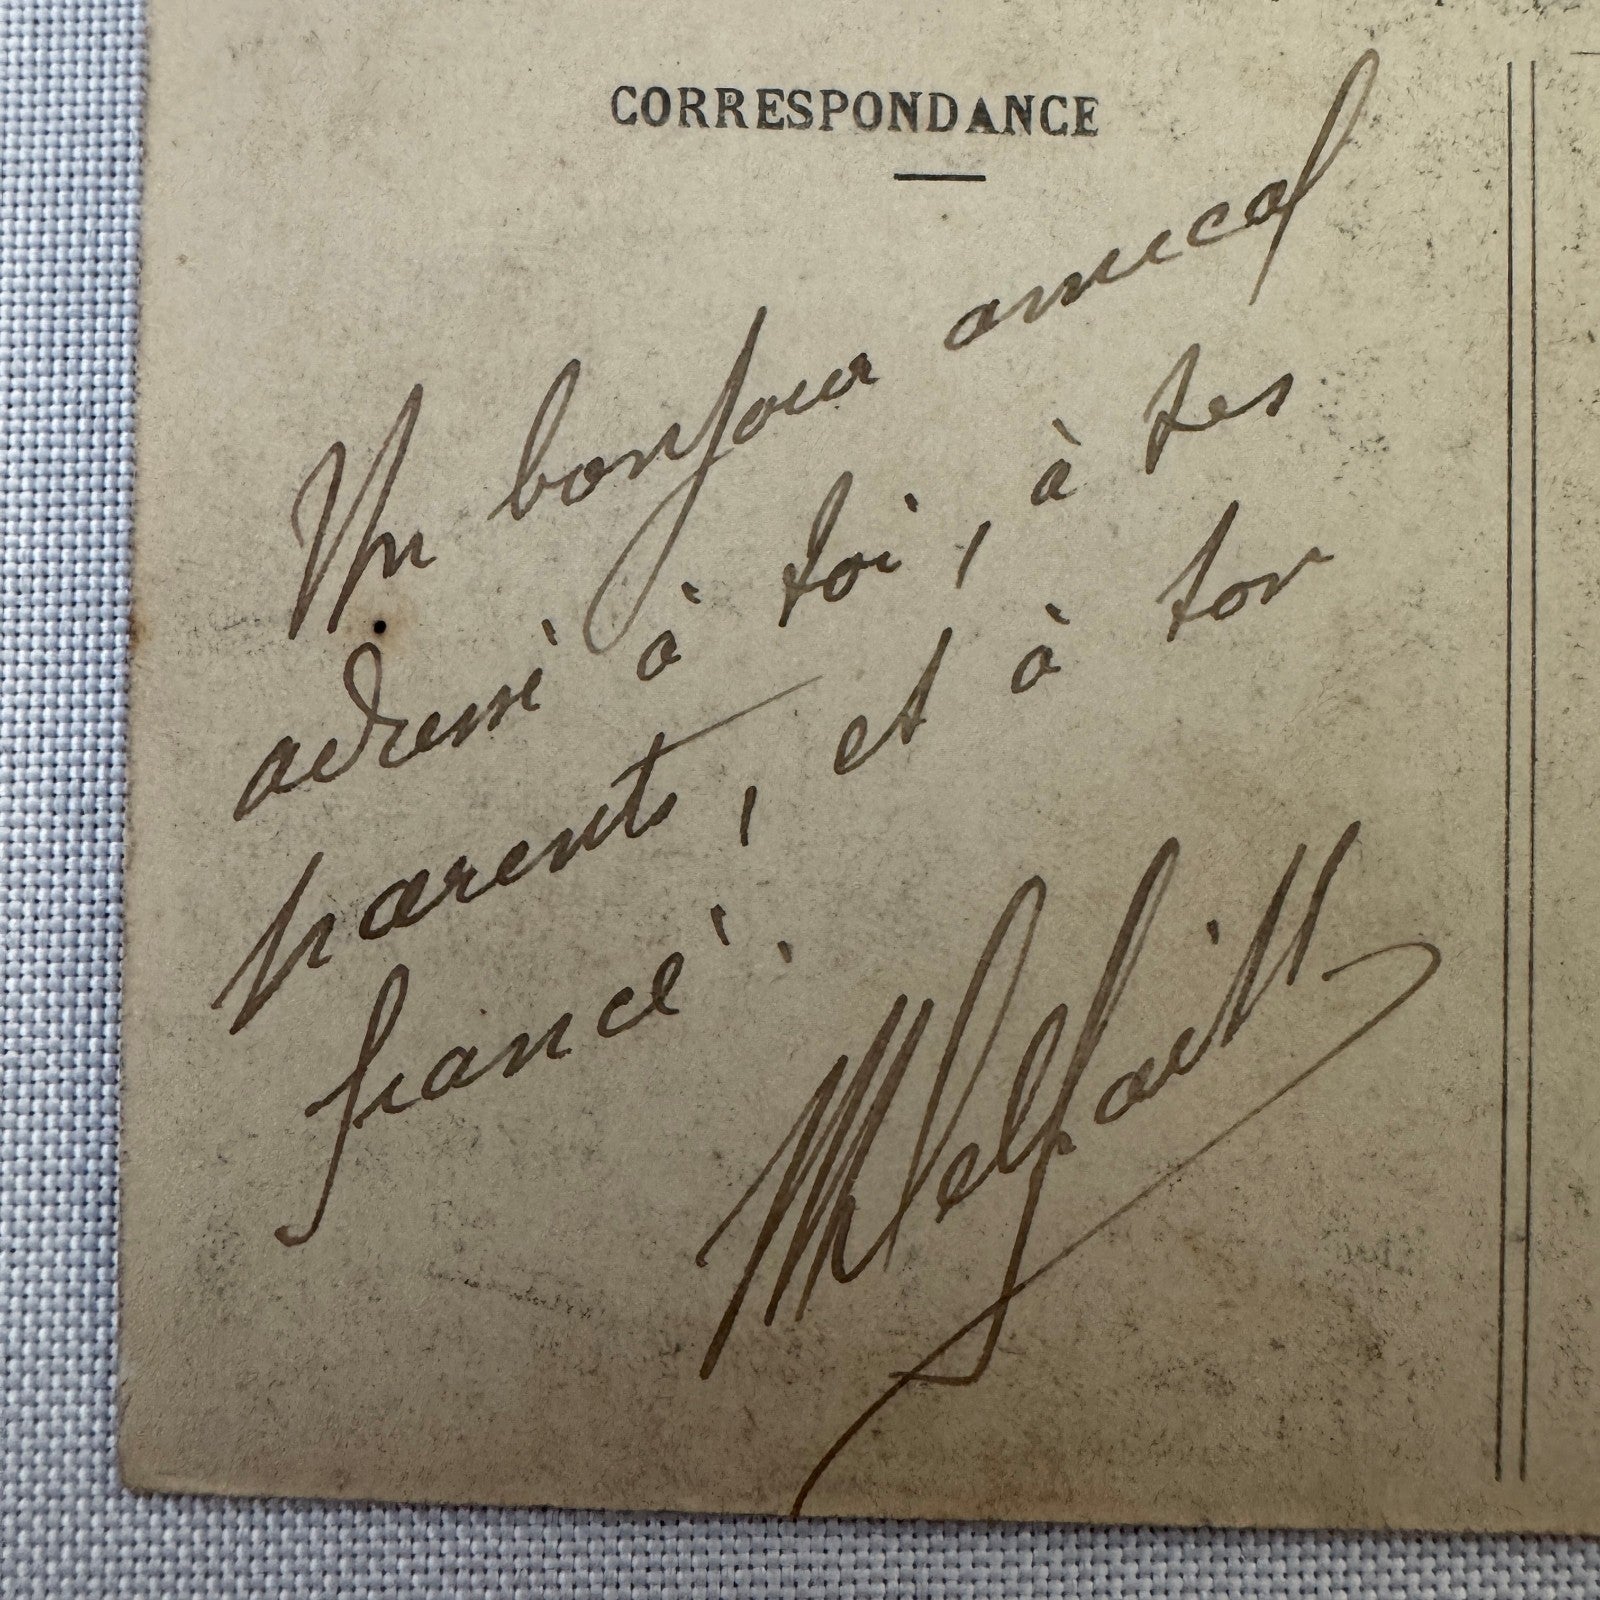 CORRESPONDANCE
Un bonjour amical
adressé à toi, à tes
parents, et à ton
fiancé.